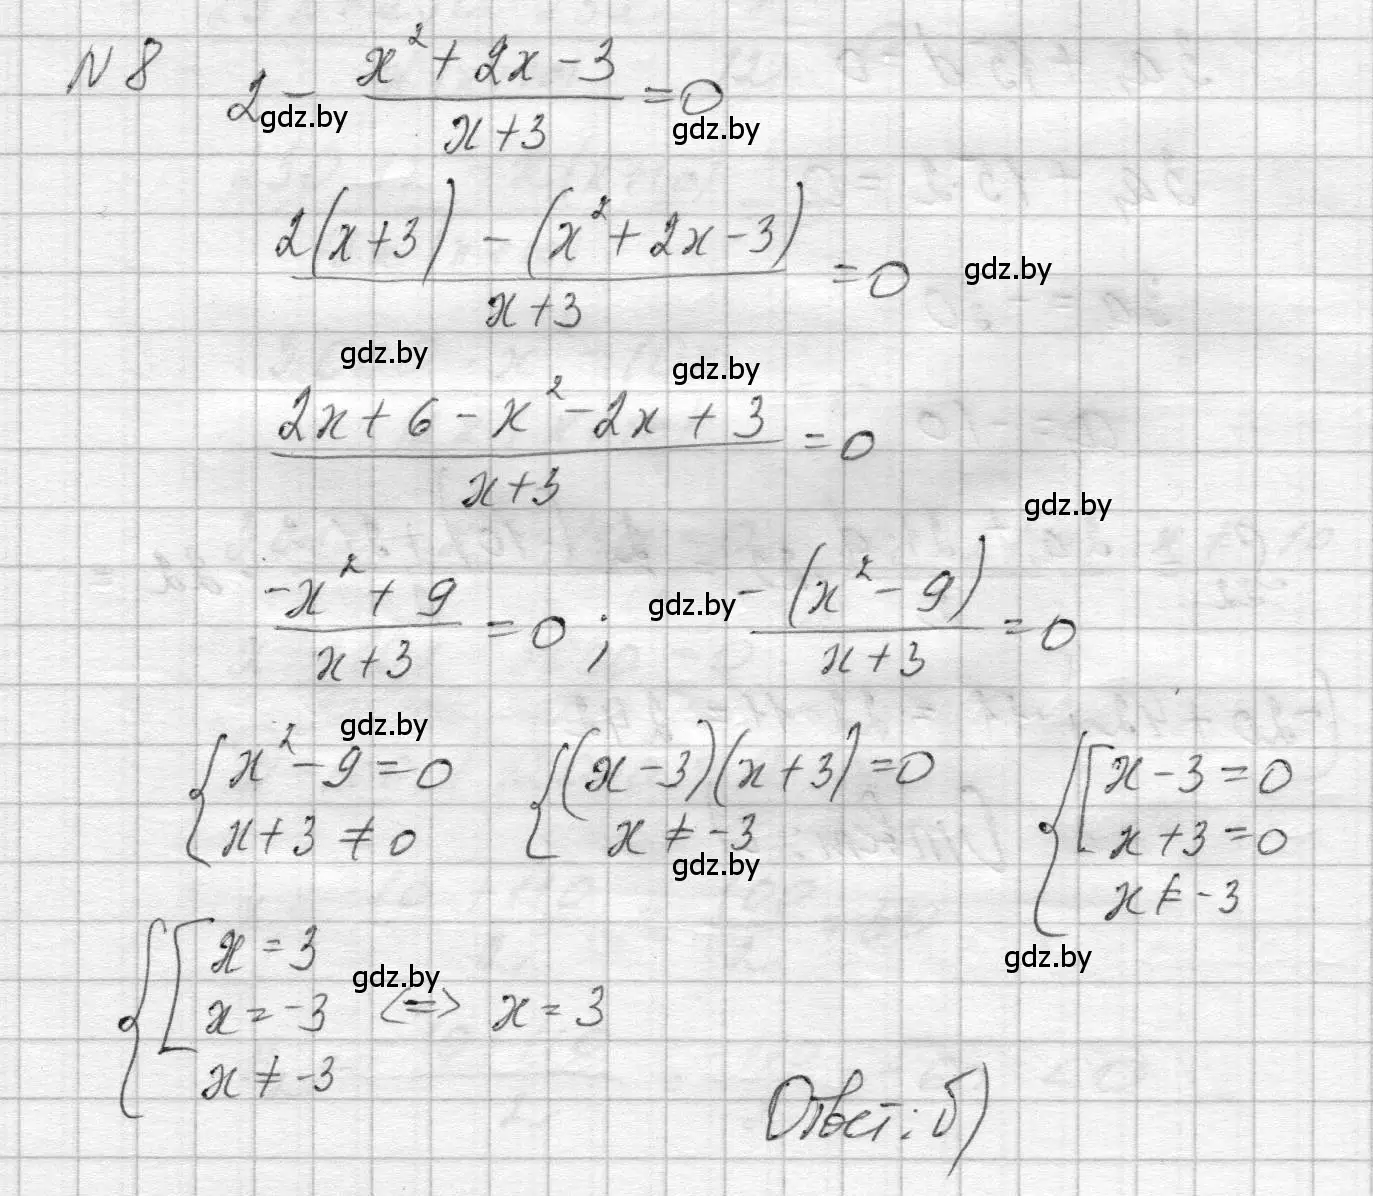 N 8 2 - (x² + 2x - 3)/(x + 3) = 0
gdz.by gdz.by
(2(x+3) - (x² + 2x - 3))/(x + 3) = 0 gdz.by
gdz.by gdz.by
(2x + 6 - x² - 2x + 3)/(x + 3) = 0
gdz.by
(-x² + 9)/(x + 3) = 0 ; gdz.by (-(x² - 9))/(x + 3) = 0
gdz.by
{ x² - 9 = 0 { (x - 3)(x + 3) = 0 { [ x - 3 = 0
x + 3 ≠ 0 x ≠ -3 x + 3 = 0
gdz.by x ≠ -3
gdz.by
{ [ x = 3 gdz.by
x = -3 <=> x = 3
x ≠ -3
Ответ: б)